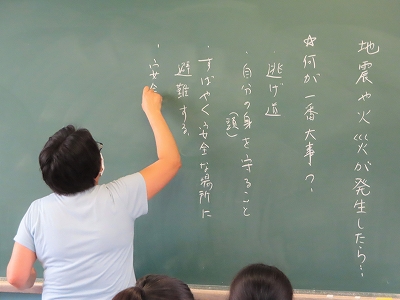 地震や火災が発生したら…
☆何が一番大事？
逃げ道
・自分の身を守ること
(頭)
・すばやく安全な場所に
避難する
・安全